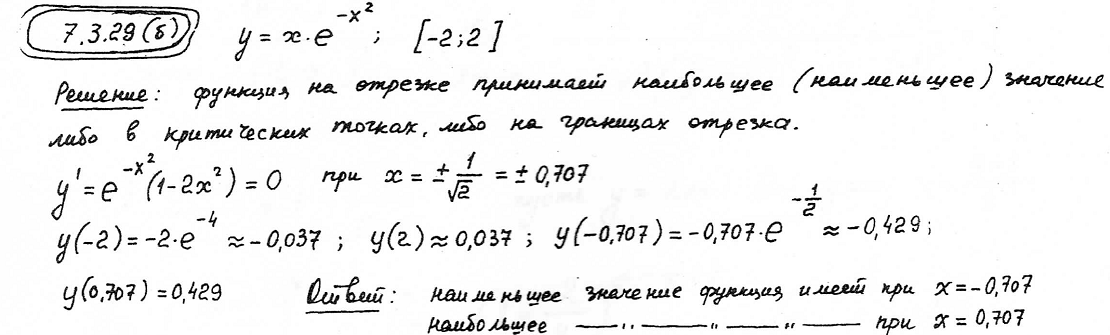 7.3.29(б) y = x·e^{-x²}; [-2;2]
Решение: функция на отрезке принимает наибольшее (наименьшее) значение
либо в критических точках, либо на границах отрезка.
y' = e^{-x²}(1-2x²) = 0 при x = ± 1/√2 = ± 0,707
y(-2) = -2·e^{-4} ≈ -0,037; y(2) ≈ 0,037; y(-0,707) = -0,707·e^{-1/2} ≈ -0,429;
y(0,707) = 0,429 Ответ: наименьшее значение функция имеет при x = -0,707
наибольшее —„—„—„— при x = 0,707